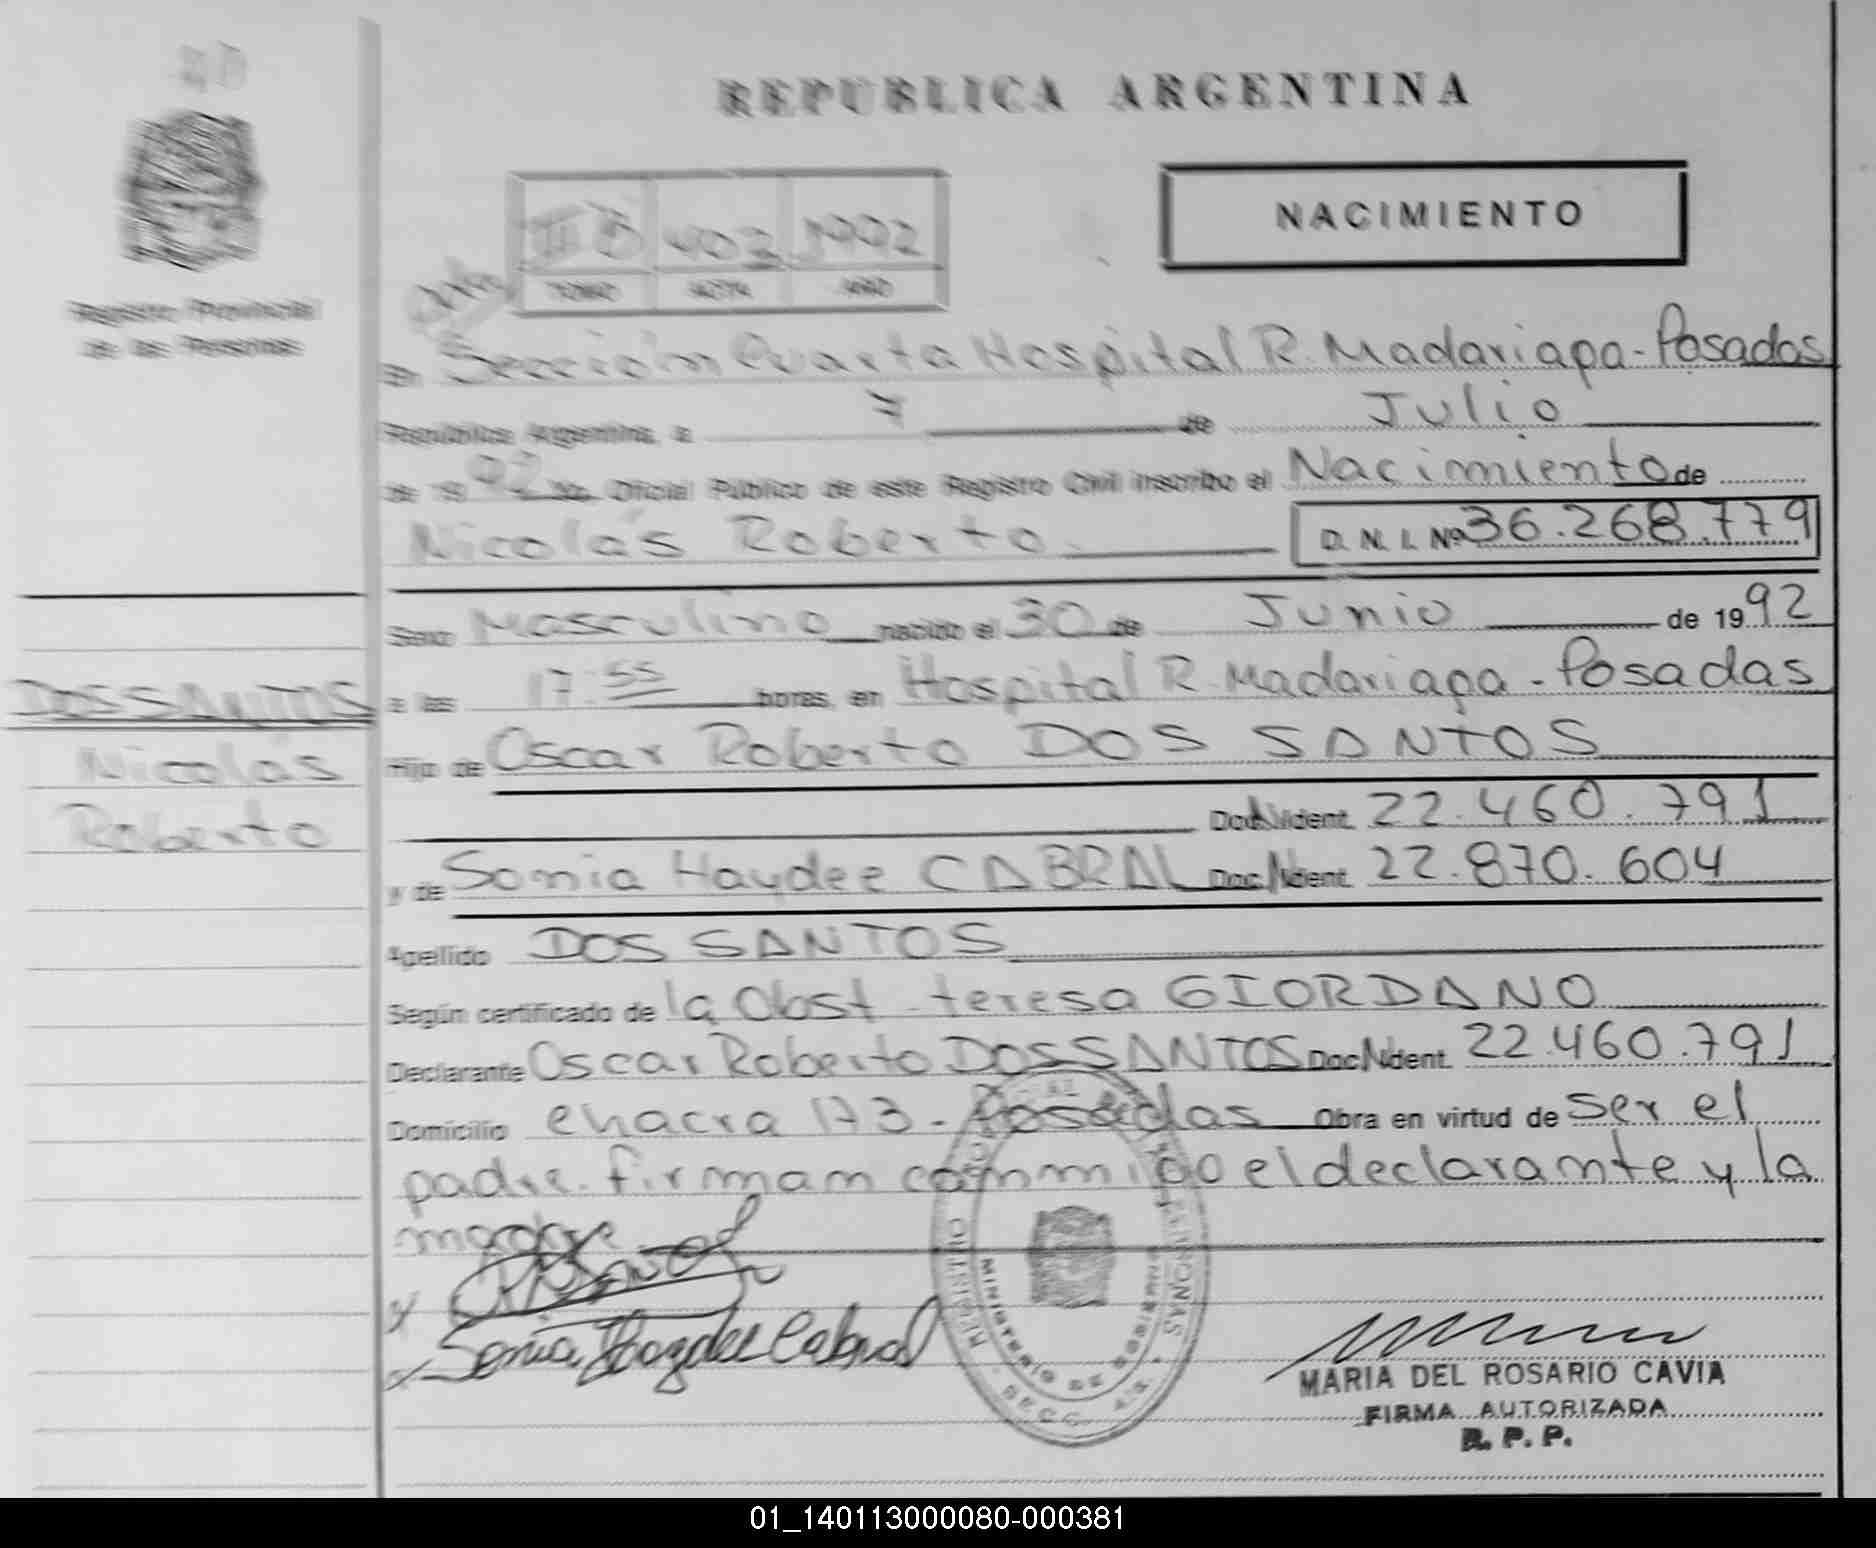 REPUBLICA ARGENTINA
NACIMIENTO
403 1992
TOMO ACTA AÑO
Registro Provincial
de las Personas
en Sección Cuarta Hospital R. Madariaga - Posadas
República Argentina, a 7 de Julio
de 19 92 Yo, Oficial Público de este Registro Civil inscribo el Nacimiento de
Nicolás Roberto. D. N. I. Nº 36.268.779
Sexo Masculino nacido el 30 de Junio de 19 92
a las 17:55 horas, en Hospital R. Madariaga - Posadas
DOS SANTOS
Nicolás
Roberto
Hijo de Oscar Roberto DOS SANTOS
Doc. N. Ident. 22.460.791
y de Sonia Haydee CABRAL Doc. N. Ident. 22.870.604
Apellido DOS SANTOS
Según certificado de la Obst. teresa GIORDANO
Declarante Oscar Roberto DOS SANTOS Doc. N. Ident. 22.460.791
Domicilio chacra 173 - Posadas Obra en virtud de ser el
padre. firman conmigo el declarante y la
madre.
Sonia Haydee Cabral
MINISTERIO DE GOBIERNO
SECC. 4ta.
MARIA DEL ROSARIO CAVIA
FIRMA AUTORIZADA
R. P. P.
01_140113000080-000381